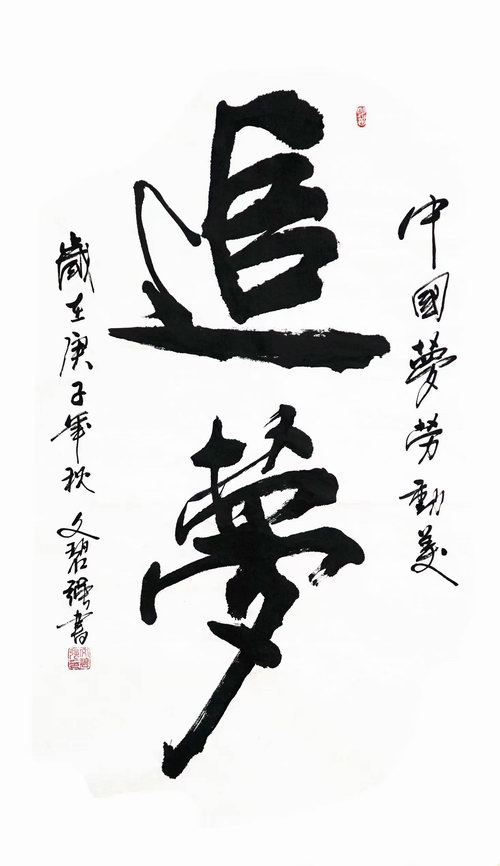 中國夢勞動美
追夢
歲在庚子年秋 文碧強書